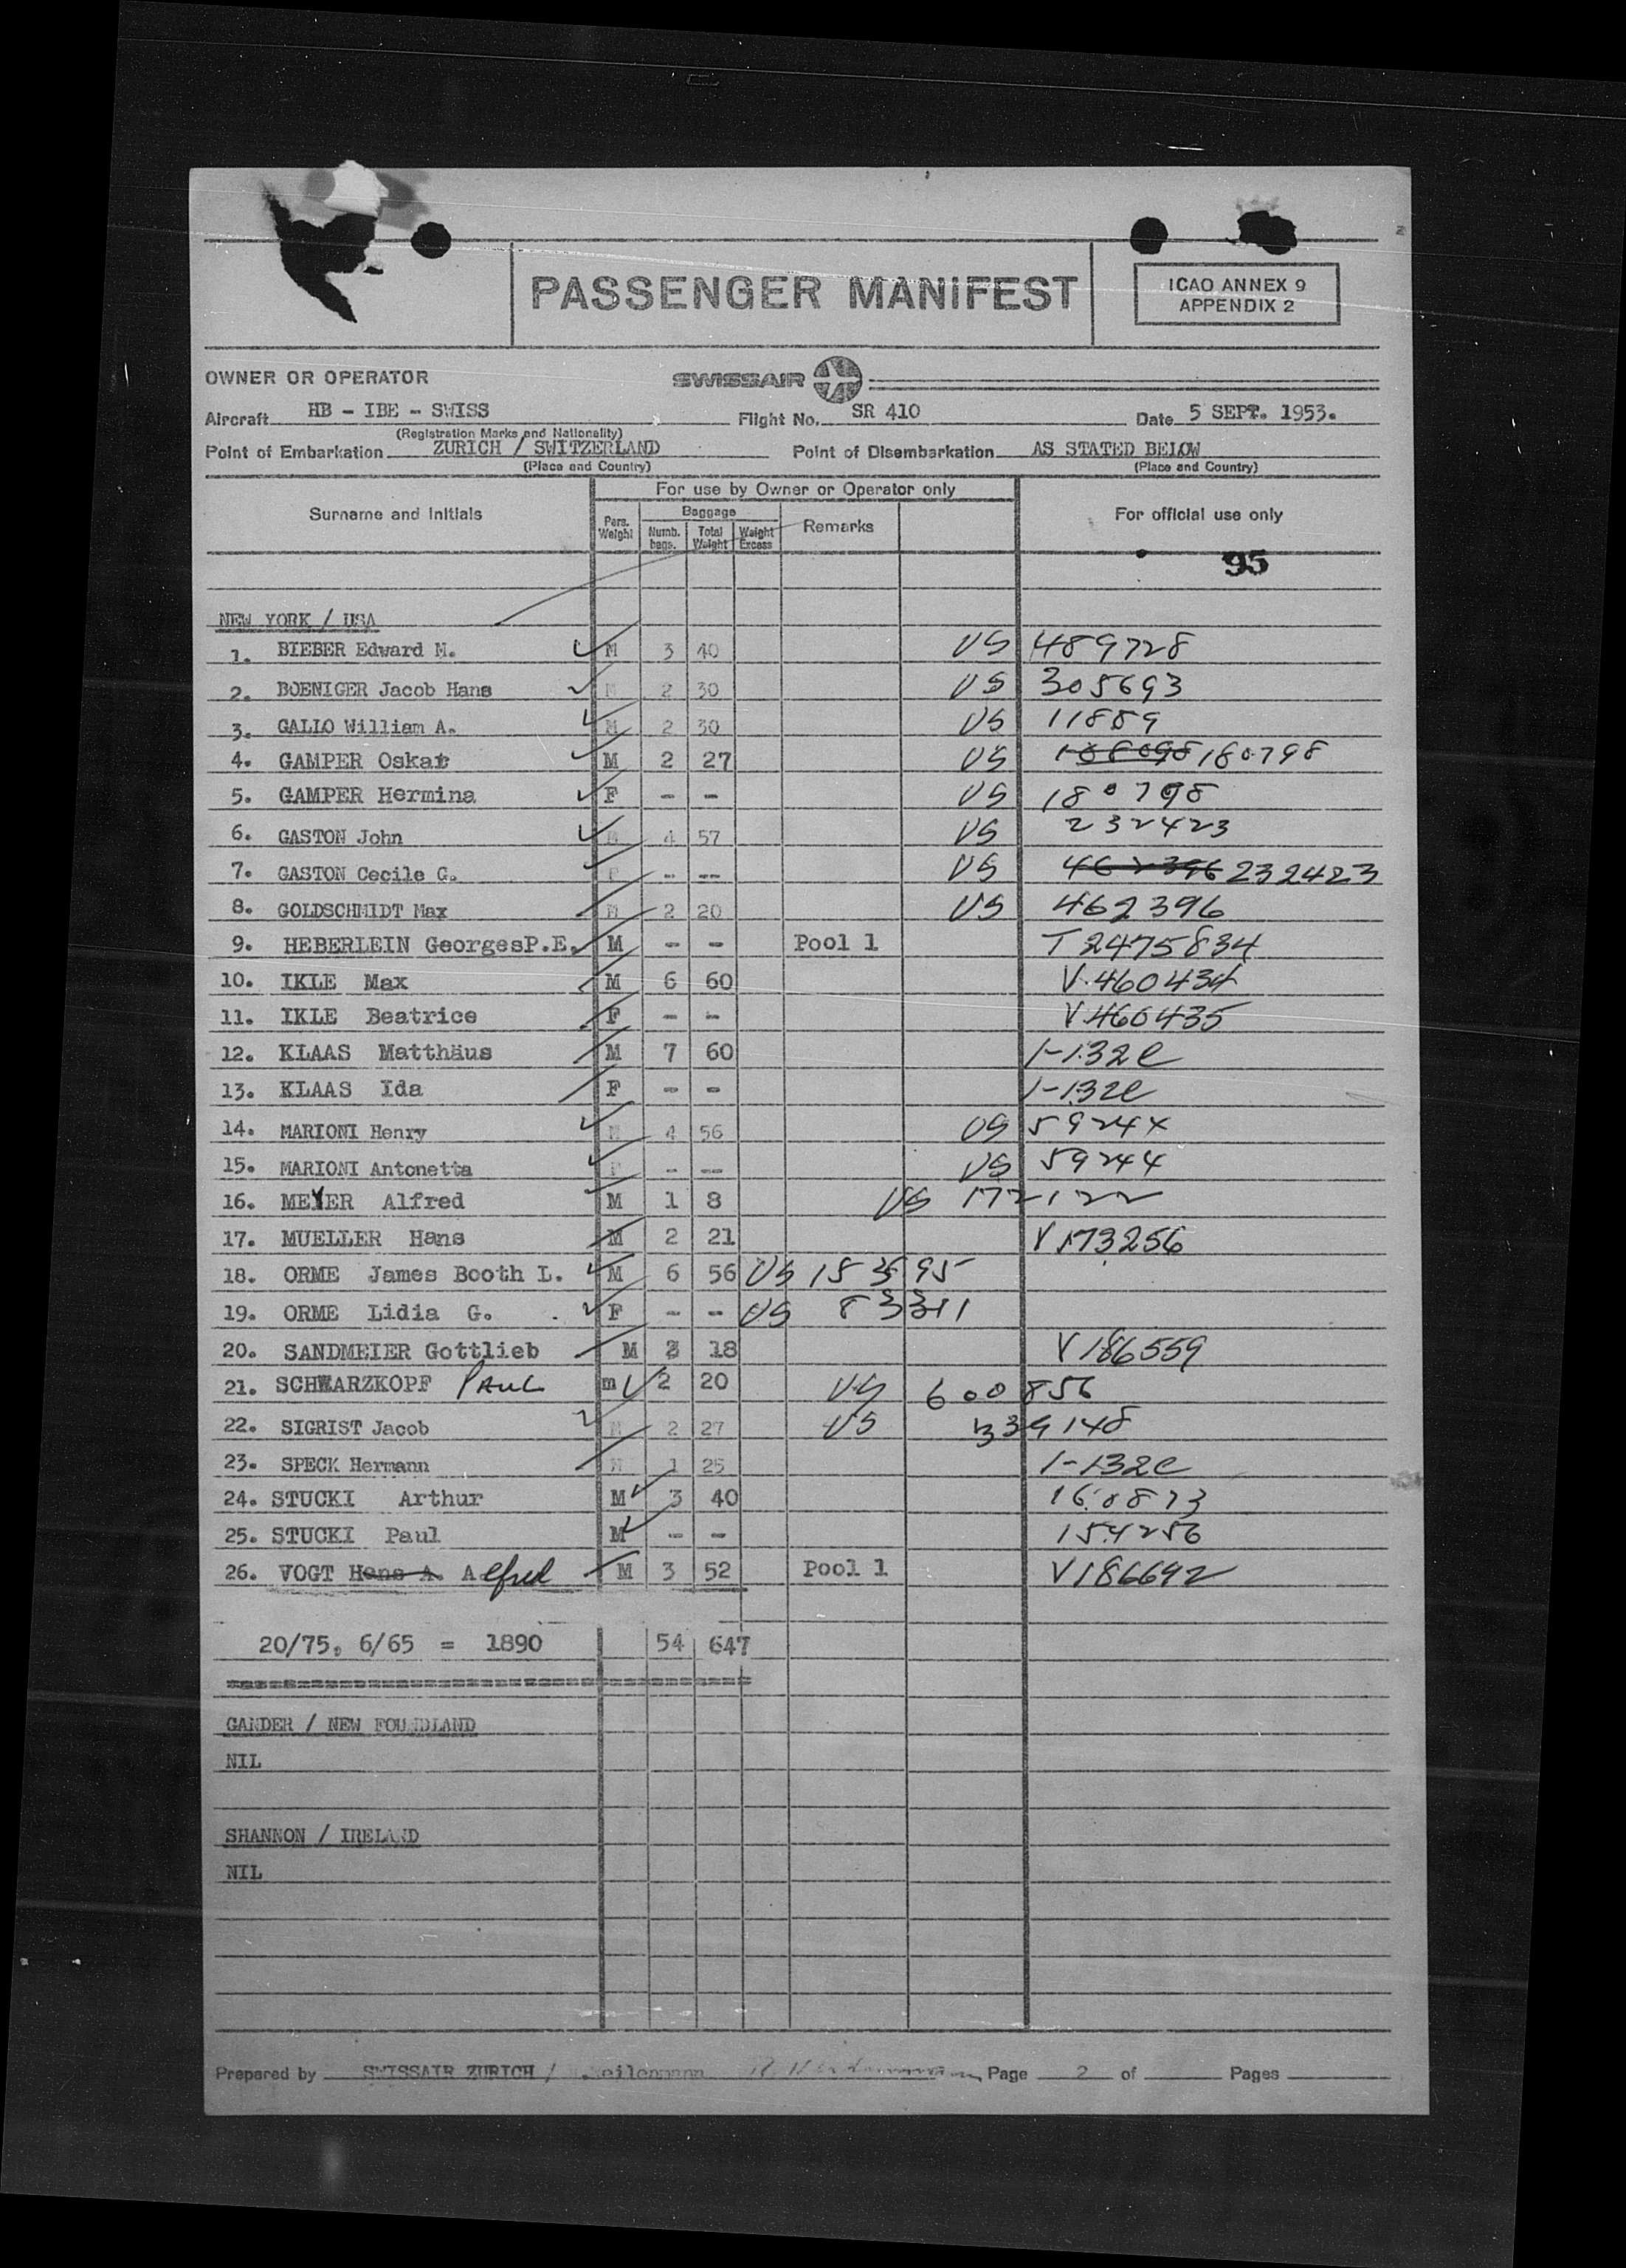 PASSENGER MANIFEST
ICAO ANNEX 9
APPENDIX 2
OWNER OR OPERATOR
SWISSAIR
Aircraft HB - IBE - SWISS Flight No. SR 410 Date 5 SEPT. 1953.
(Registration Marks and Nationality)
Point of Embarkation ZURICH / SWITZERLAND Point of Disembarkation AS STATED BELOW
(Place and Country) (Place and Country)
For use by Owner or Operator only
Surname and Initials Pers. Weight Baggage Numb. bags. Total Weight Weight Excess Remarks For official use only
95
NEW YORK / USA
1. BIEBER Edward M. M 3 40 US 489728
2. BOENIGER Jacob Hans M 2 30 US 305693
3. GALLO William A. M 2 30 US 11889
4. GAMPER Oskar M 2 27 US 180798
5. GAMPER Hermina F - - US 180798
6. GASTON John M 4 57 US 232423
7. GASTON Cecile G. F - -- US 462396 232423
8. GOLDSCHMIDT Max M 2 20 US 462396
9. HEBERLEIN GeorgesP.E. M - - Pool 1 T 2475834
10. IKLE Max M 6 60 V.460434
11. IKLE Beatrice F - - V.460435
12. KLAAS Matthäus M 7 60 1-132C
13. KLAAS Ida F - - 1-132C
14. MARIONI Henry M 4 56 US 59244
15. MARIONI Antonetta F - -- US 59244
16. MEYER Alfred M 1 8 US 172122
17. MUELLER Hans M 2 21 V173256
18. ORME James Booth L. M 6 56 US
19. ORME Lidia G. F - - US 83311
20. SANDMEIER Gottlieb M 3 18 V186559
21. SCHWARZKOPF PAUL m 2 20 US 600856
22. SIGRIST Jacob M 2 27 US 339148
23. SPECK Hermann M 1 25 1-132C
24. STUCKI Arthur M 3 40 160873
25. STUCKI Paul M - - 154256
26. VOGT Hans A. Alfred M 3 52 Pool 1 V186692
20/75, 6/65 = 1890 54 647
GANDER / NEW FOUNDLAND
NIL
SHANNON / IRELAND
NIL
Prepared by SWISSAIR ZURICH / Page 2 of Pages